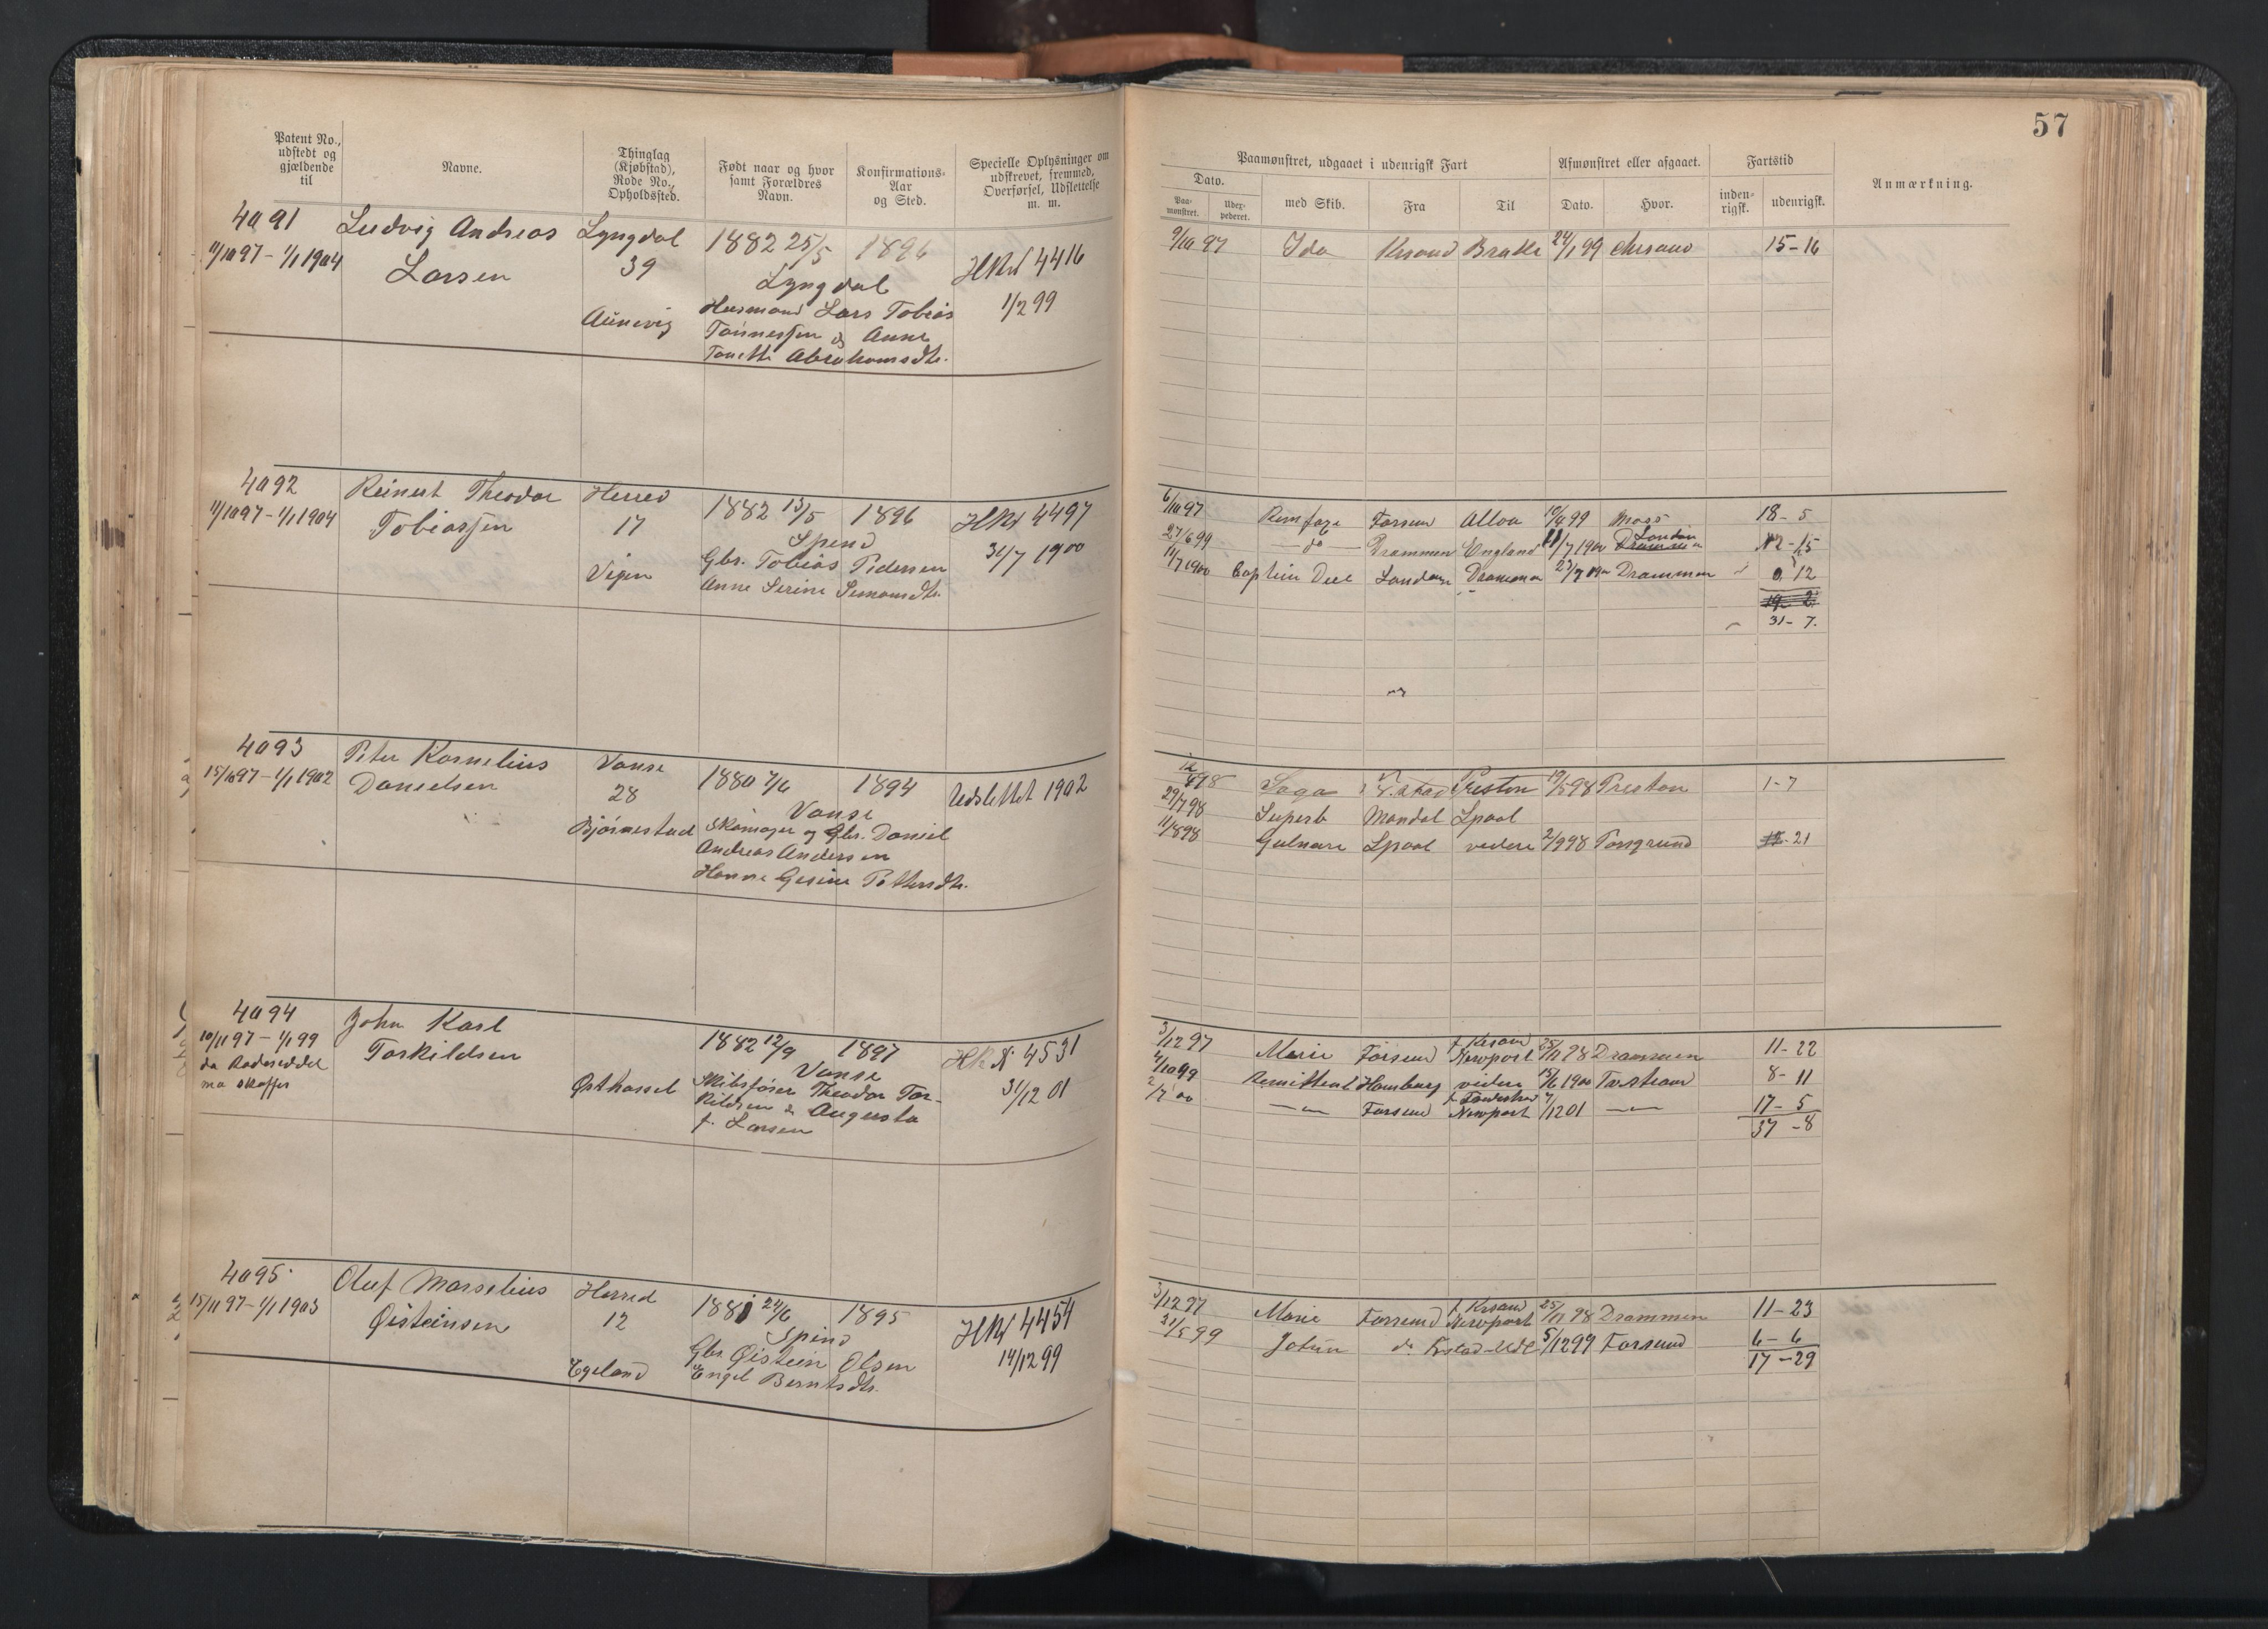 Patent No., udstedt og gjældende til
Navne.
Thinglag (Kjøbstad), Rode No., Opholdssted.
Født naar og hvor samt Forældres Navn.
Konfirmations-Aar og Sted.
Specielle Oplysninger om udskrevet, fremmed, Overførsel, Udslettelse m. m.
4091 Ludvig Andreas Lyngdal 1882 25/5 1896
11/10 97 - 1/1 1904 Larsen 39 Lyngdal HRN 4416
Aunevig Husmand Lars Tobias 1/2 99
Tønnessen & Anne
Tonette Abrahamsdtr.
4092 Reinert Theodor Herred 1882 13/5 1896 HRN 4497
11/10 97 - 1/1 1904 Tobiassen 17 Spind 31/7 1900
Vigen Gbr. Tobias Pedersen
Anne Serine Simonsdtr.
4093 Peter Kornelius Vanse 1880 7/6 1894 Udslettet 1902
15/10 97 - 1/1 1902 Danielsen 28 Vanse
Bjørnestad Skomager og Gbr. Daniel
Andreas Andersen
Hanne Gesine Pettersdtr.
4094 John Karl 1882 12/9 1897 HRN 4531
10/11 97 - 1/1 99 Torkildsen Vanse 31/12 01
da Rodeseddel Østhassel Skibsfører Theodor Tor-
må skaffes kildsen & Augusta
f. Larsen
4095 Oluf Marselius Herred 1881 24/6 1895 HRN 4454
15/11 97 - 1/1 1903 Øisteinsen 12 Spind 14/12 99
Egeland Gbr. Øistein Olsen
Engel Berntsdtr.
57
Paamønstret, udgaaet i udenrigsk Fart
Afmønstret eller afgaaet.
Fartstid
Anmærkning.
Dato.
Paa-mønstret.
Udex-pederet.
med Skib.
Fra
Til
Dato.
Hvor.
inden-rigsk.
udenrigsk.
9/10 97 Ida Krsand Brake 24/1 99 Chrsand 15-16
6/10 97 Rimfaxe Farsund Alloa 10/4 99 Moss 18-5
27/6 99 — do — Drammen England 11/7 1900 London 12-15
11/7 1900 Captein Dee London Drammen 23/7 1900 Drammen 0 12
31-7.
12/4 98 Saga Preston 19/5 98 Preston 1-7
29/7 98 Superb Mandal Lpool
11/8 98 Gulnare Lpool videre 2/9 98 Porsgrund 21
3/12 97 Marie Farsund f. Krsand Newport 25/11 98 Drammen 11-22
4/10 99 Remittent Hamburg videre 15/6 1900 8-11
2/7 00 — " — Farsund Newport 7/12 01 — " — 17-5
37-8
3/12 97 Marie Farsund f. Krsand Newport 25/11 98 Drammen 11-23
31/5 99 Jotun do 5/12 99 Farsund 6-6
17-29